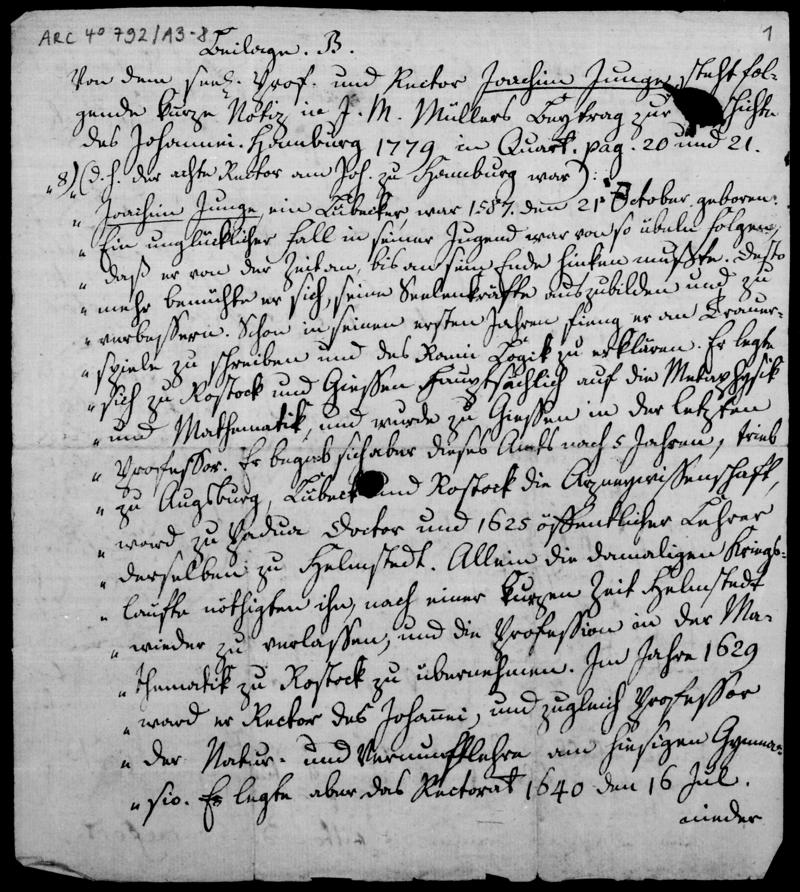 ARC 4° 792/A3-8
1
Beilage. B.
Von dem seel. Prof. und Rector Joachim Junge, steht fol-
gende kurze Notiz in J. M. Müllers Beytrag zur schichte
des Johannei. Hamburg 1779 in Quart. pag. 20 und 21.
„8) (d. h. der achte Rector am Joh. zu Hamburg war):
„ Joachim Junge, ein Lübecker, war 1587. den 21 October geboren.
„ Ein unglücklicher Fall in seiner Jugend war von so übeln Folgen,
„ daß er von der Zeit an, bis an sein Ende hinken mußte. Desto
„ mehr bemühte er sich, seine Seelenkräfte auszubilden und zu
„ verbessern. Schon in seinen ersten Jahren fieng er an Trauer-
„ spiele zu schreiben und des Rami Logik zu erklären. Er legte
„ sich zu Rostock und Giessen hauptsächlich auf die Metaphysik
„ und Mathematik, und wurde zu Giessen in der letzten
„ Professor. Er begab sich aber dieses Amts nach 5 Jahren, trieb
„ zu Augsburg, Lübeck und Rostock die Arzneywissenschaft,
„ ward zu Padua Doctor und 1625 öffentlicher Lehrer
„ derselben zu Helmstedt. Allein die damaligen Kriegs-
„ läufte nöthigten ihn, nach einer kurzen Zeit Helmstedt
„ wieder zu verlassen, und die Profession in der Ma-
„ thematik zu Rostock zu übernehmen. Im Jahre 1629
„ ward er Rector des Johannei, und zugleich Professor
„ der Natur- und Vernunftlehre am hiesigen Gymna-
„ sio. Er legte aber das Rectorat 1640 den 16 Jul.
nieder